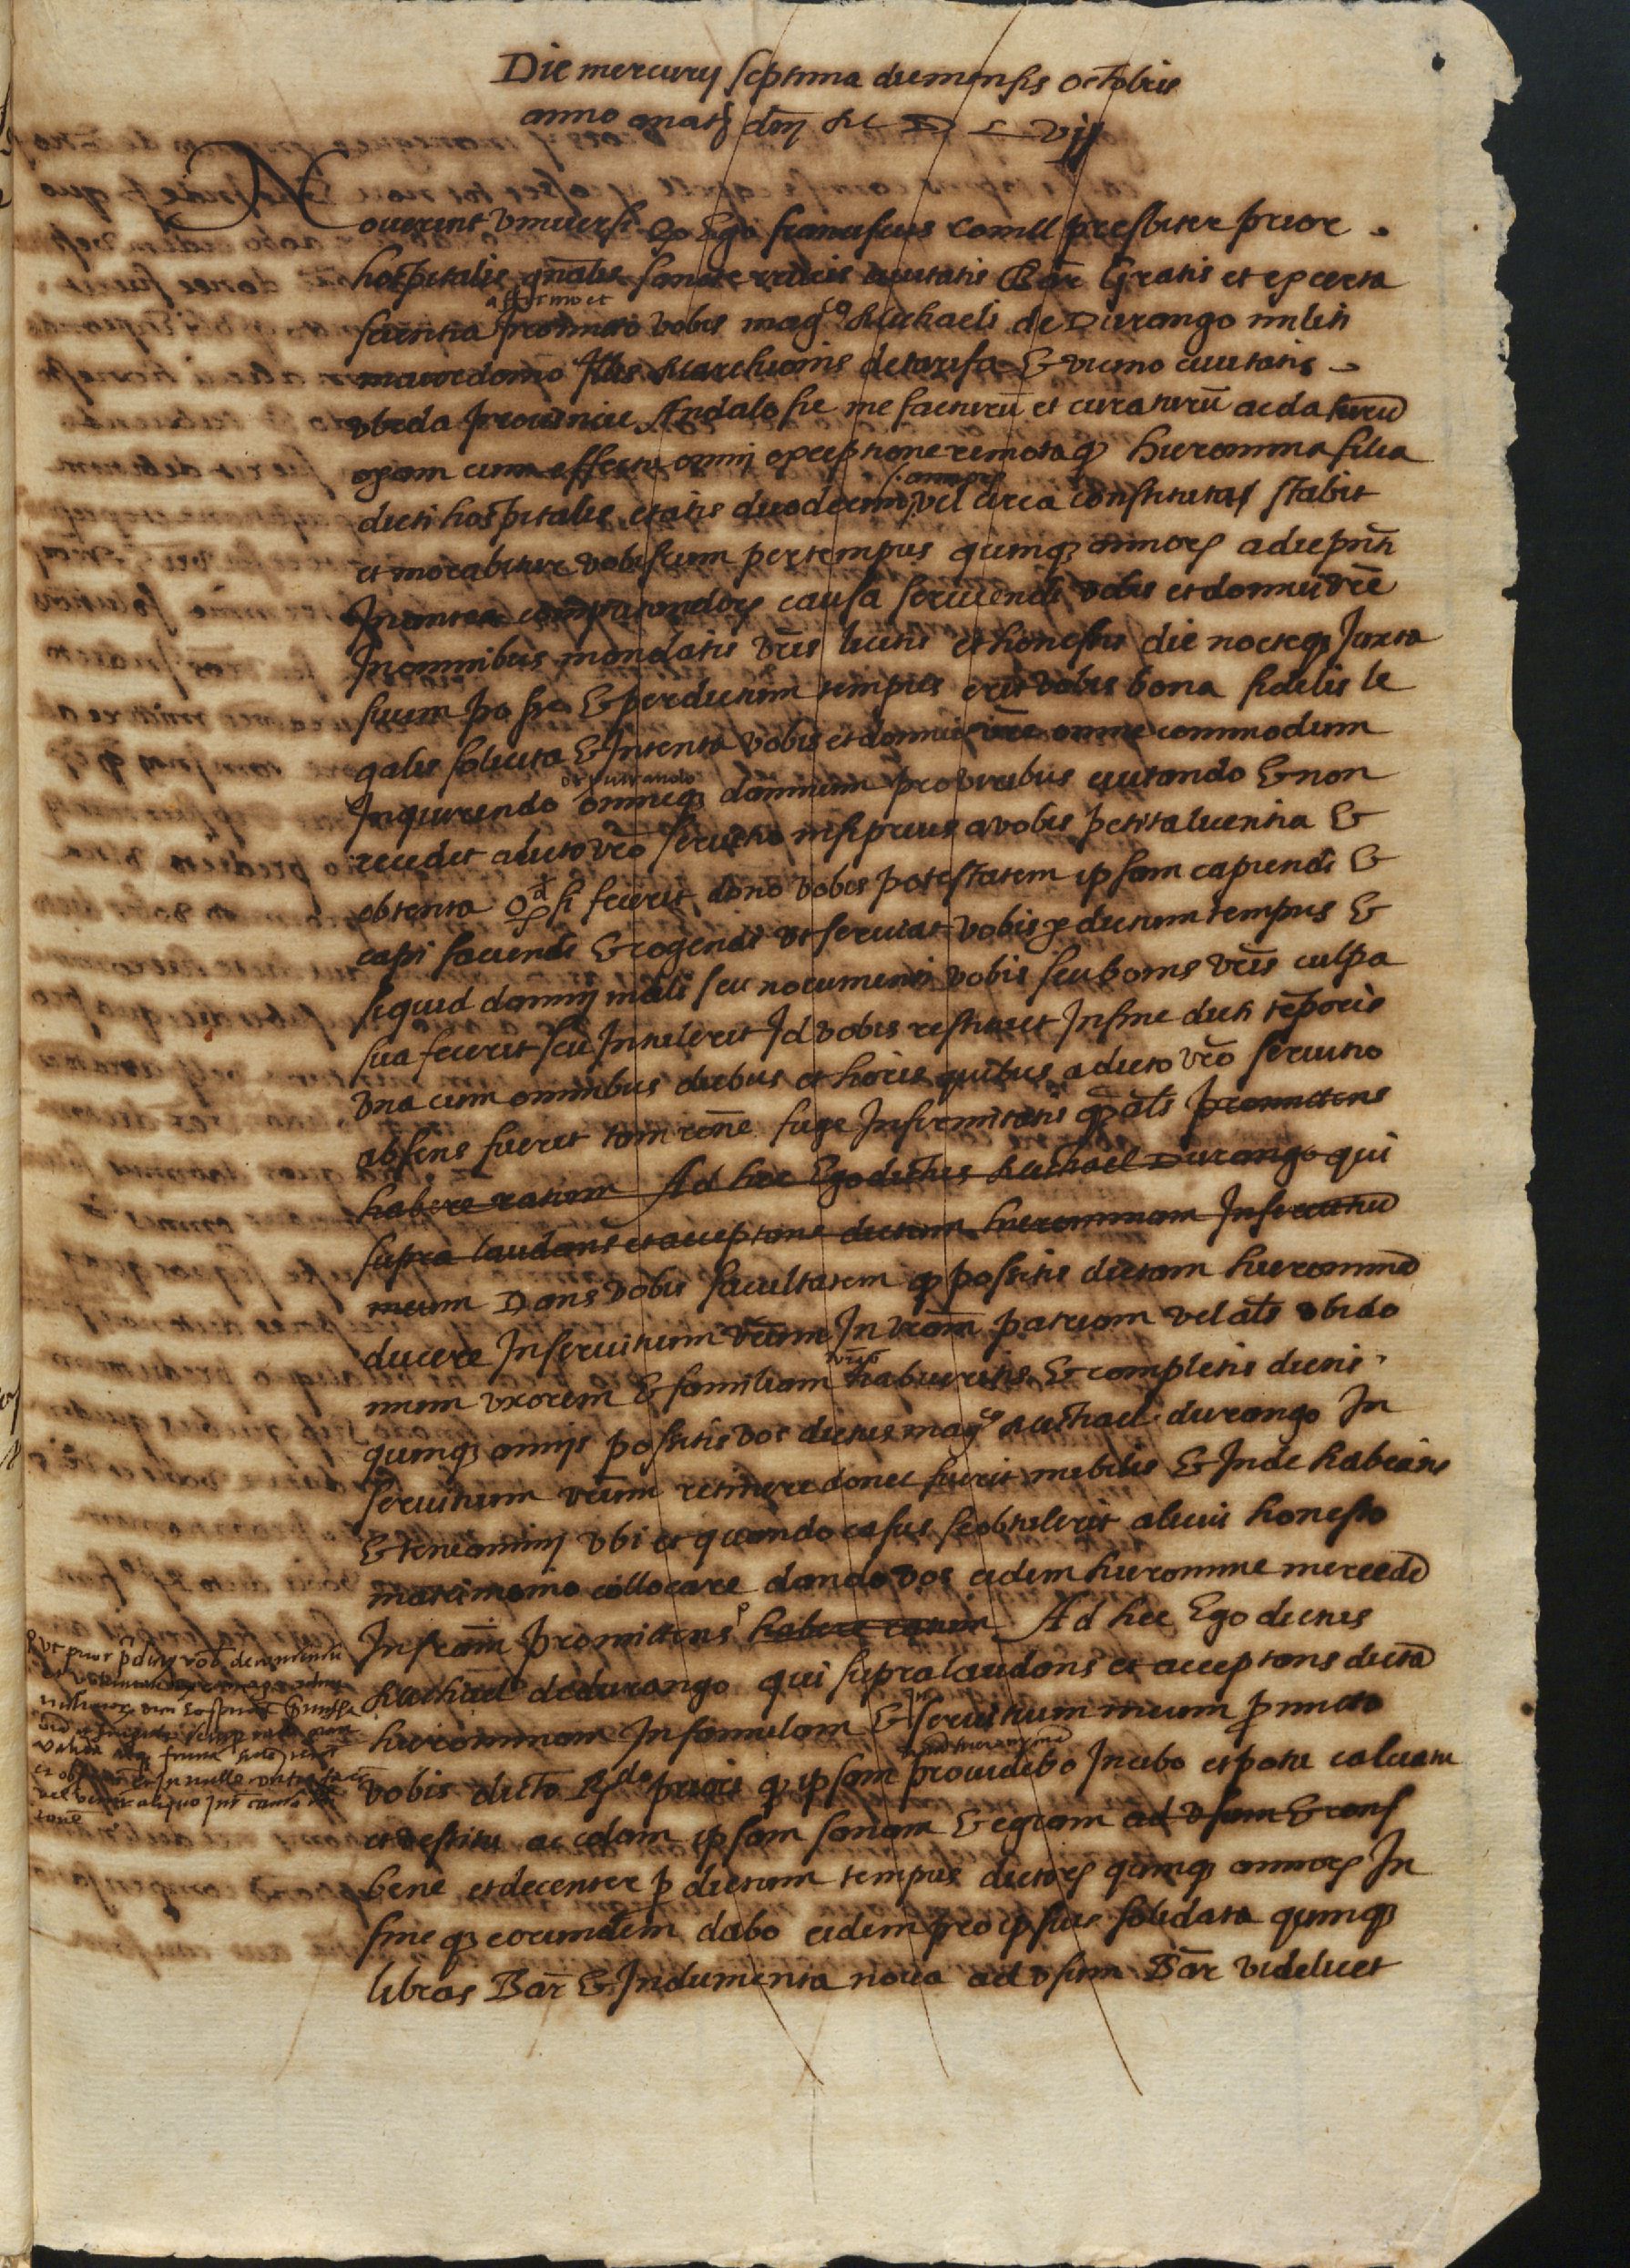 Die mercurij septima die mensis octobris
anno a natt dnj M D L vij
Noverint universi Qp Ego franciscus comell presbiter prior
hospitalis gnalis sancte crucis civitatis Bar Gratis et ex certa
affirmo et
scientia promitto vobis magco Michaeli de Durango militi
maiordomo Illis Marchionis de tarifa & vicino civitatis
vbeda provincie Andalosie me facturu et curaturu ac daturu
opam cum effectu omnj exceptione remota q hieronima filia
annor
dicti hospitalis etatis duodecim vel circa constituta stabit
et morabitur vobiscum per tempus quinq annor a die pnti
In antea computandor causa serviendi vobis et domui vre
In omnibus mandatis vris licitis et honestis die nocteq Juxta
suum posse & per dictum tempus erit vobis bona fidelis le
galis solicita & Intenta vobis et domui vre omne commodum
procurando
Inquirendo omneq damnum pro viribus evitando & non
recedet a dicto vro servitio nisi prius a vobis petita licentia &
obtenta Qd si fecerit dono vobis potestatem ipsam capiendi &
capi faciendi & cogendi vt serviat vobis p dictum tempus &
si quid damnj mali seu nocumenti vobis seu bonis vris culpa
sua fecerit seu Intulerit Id vobis restituet In fine dicti temporis
vna cum omnibus diebus et horis quibus a dicto vro servitio
absens fuerit tam rone fuge Infirmitatis q als promittens
habere ratum Ad hec Ego dictus Michael Durango qui
supra laudans et acceptans dictam hieronimam In servitiu
meum Dans vobis facultatem q possitis dictam hieronima
ducere In servitium vrum In vram patriam vel als vbi do
vras
mum vxorem & familiam habueritis & completis dictis
quinq annis possitis vos dictus magcus Michael durango In
servitium vrum retinere donec fuerit nubilis & Inde habeatis
& teneaminj vbi et quando casus se obtulerit alicui honesto
matrimonio collocare dando vos eidem hieronime mercede
Infram promittens habere ratum Ad hec Ego dictus
Michael de durango qui supra laudans et acceptans dicta
In
hieronimam In famulam & servitium meum pmitto
vobis dicto Rdo priori q ipsam providebo In cibo et potu calciatu
et vestitu ac colam ipsam sanam & egram ad vsum & cons
bene et decenter p dictum tempus dictor quinq annor In
fine q eorumdem dabo eidem pro ipsius solidata quinq
libras Bar & Indumenta nova ad vsum Bar videlicet